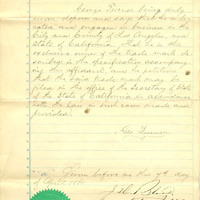 George [...] being duly
sworn deposes and says that he is
located and engaged in business in the
City and County of Los Angeles and
State of California. That he is the
exclusive owner of the trade mark de-
scribed in the specification accompany-
ing this affidavit, and he petitions
that the said trade mark may be
filed in the office of the Secretary of State
of the State of California in accordance
with the law in such cases made and
provided.
Geo
before me this 9th day